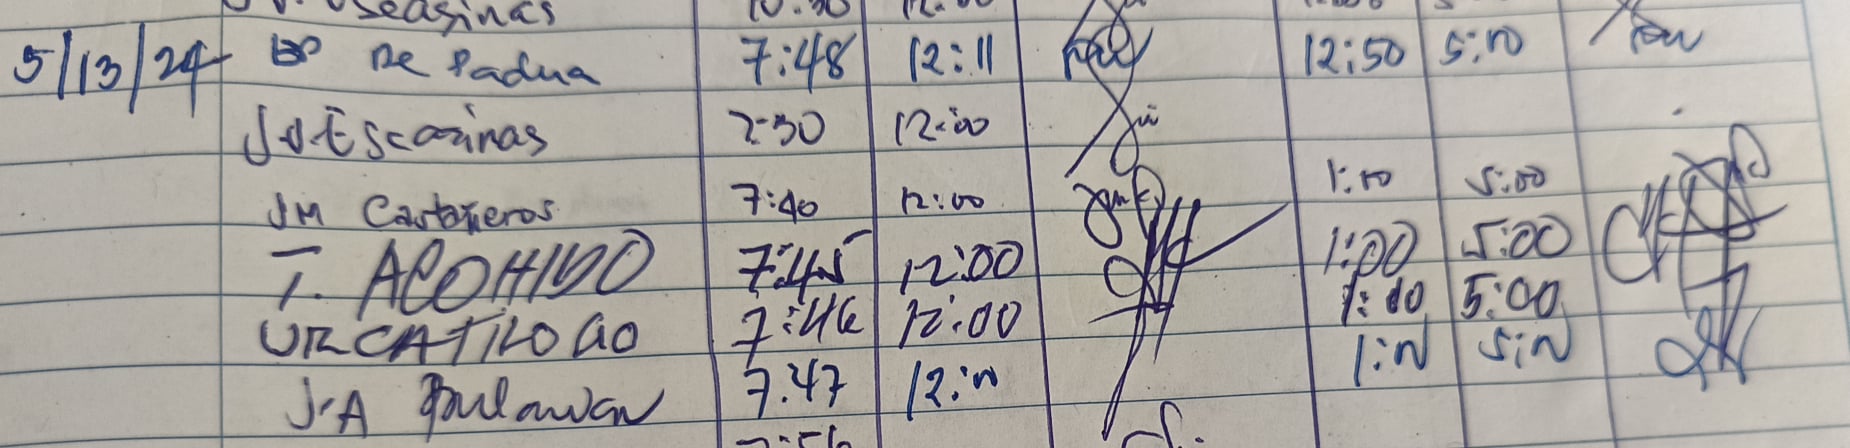 10:30 12:00
5/13/24 De Padua 7:48 12:11 12:50 5:00
J.V. Escasinas 7:30 12:00
JM Castañeros 7:40 12:00 1:00 5:00
T. ACOHIDO 7:45 12:00 1:00 5:00
VR CATILOGO 7:46 12:00 1:00 5:00
J.A Bulawan 7:47 12:00 1:00 5:00
7:56